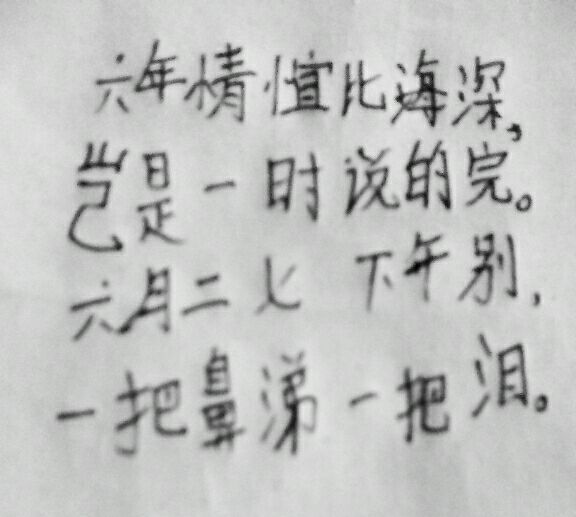 六年情愃比海深，
岂是一时说的完。
六月二七 下午别，
一把鼻涕一把泪。